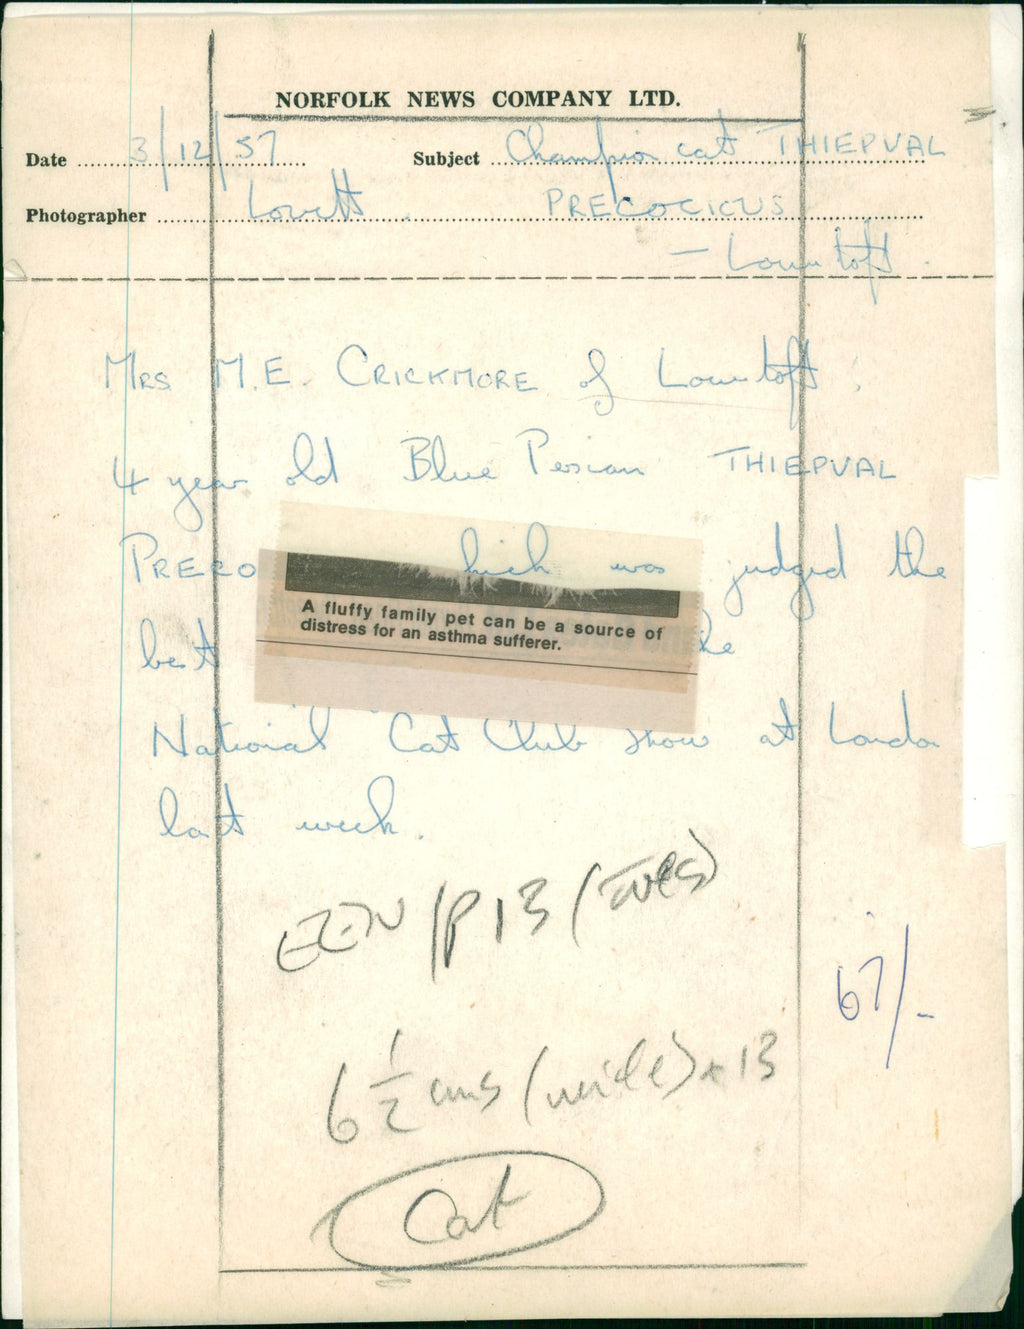 NORFOLK NEWS COMPANY LTD.
Date 3/12/57 Subject Champion cat THIEPVAL
Photographer Lovett. PRECOCIOUS
- Lowestoft.
MRS M.E. CRICKMORE of Lowestoft,
4 year old Blue Persian THIEPVAL
PRECO which was judged the
A fluffy family pet can be a source of
distress for an asthma sufferer.
best the
National Cat Club Show at London
last week.
EEN/P13 (Tues)
67/-
6 1/2 cms (wide) x 13
Cat